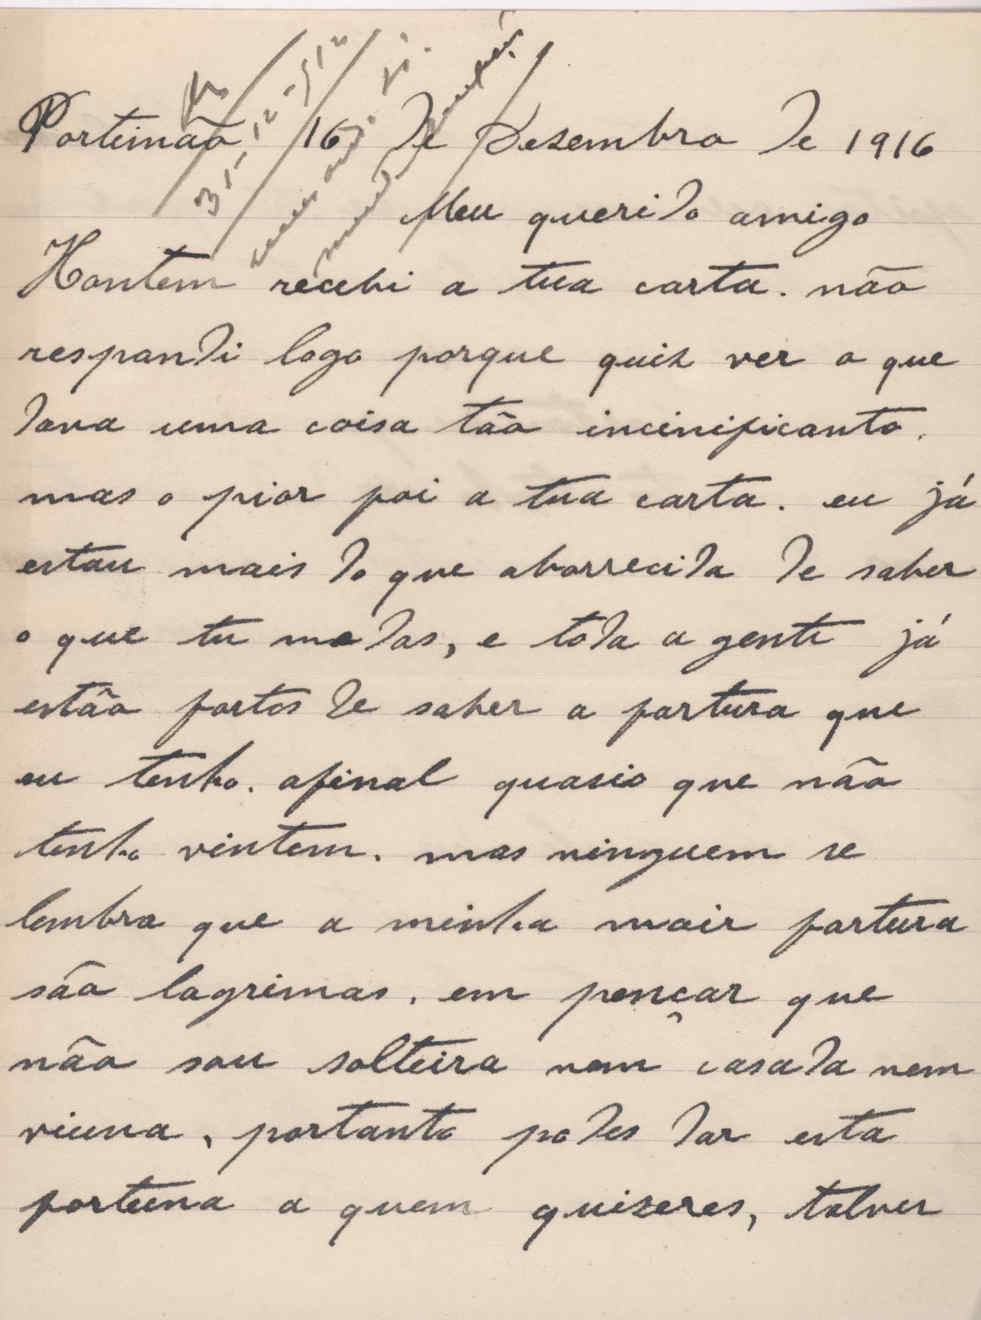 Porteimão 16 de Dezembro de 1916
31-12-912
Meu querido amigo
Hontem recebi a tua carta. não
respondi logo porque quiz ver o que
dava uma coisa tão incinificanto.
mas o pior foi a tua carta. eu já
estou mais do que aborrecida de saber
o que tu me das, e toda a gente já
estão fartos de saber a fartura que
eu tenho. afinal quasio que não
tenho vintem. mas ninguem se
lembra que a minha mair fartura
são lagrimas. em pençar que
não sou solteira nem casada nem
viuva, portanto podes dar esta
forteuna a quem quizeres, talver